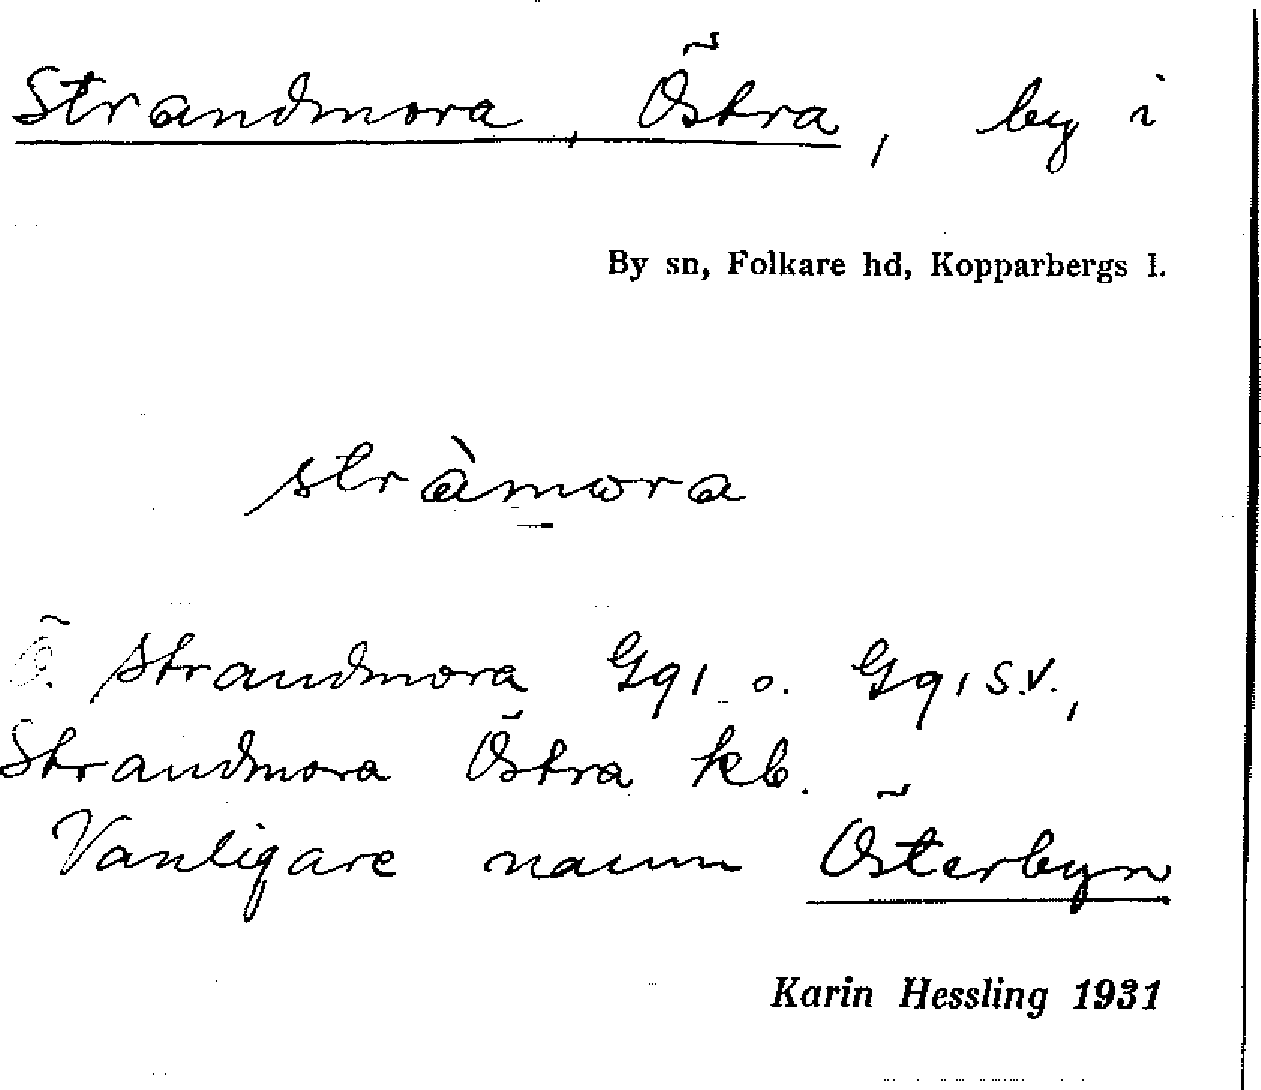 Strandmora, Östra, by i
By sn, Folkare hd, Kopparbergs l.
stràmora
Ö. Strandmora Gq1 o. Gq1 S.V.,
Strandmora Östra kb.
Vanligare namn Österbyn
Karin Hessling 1931